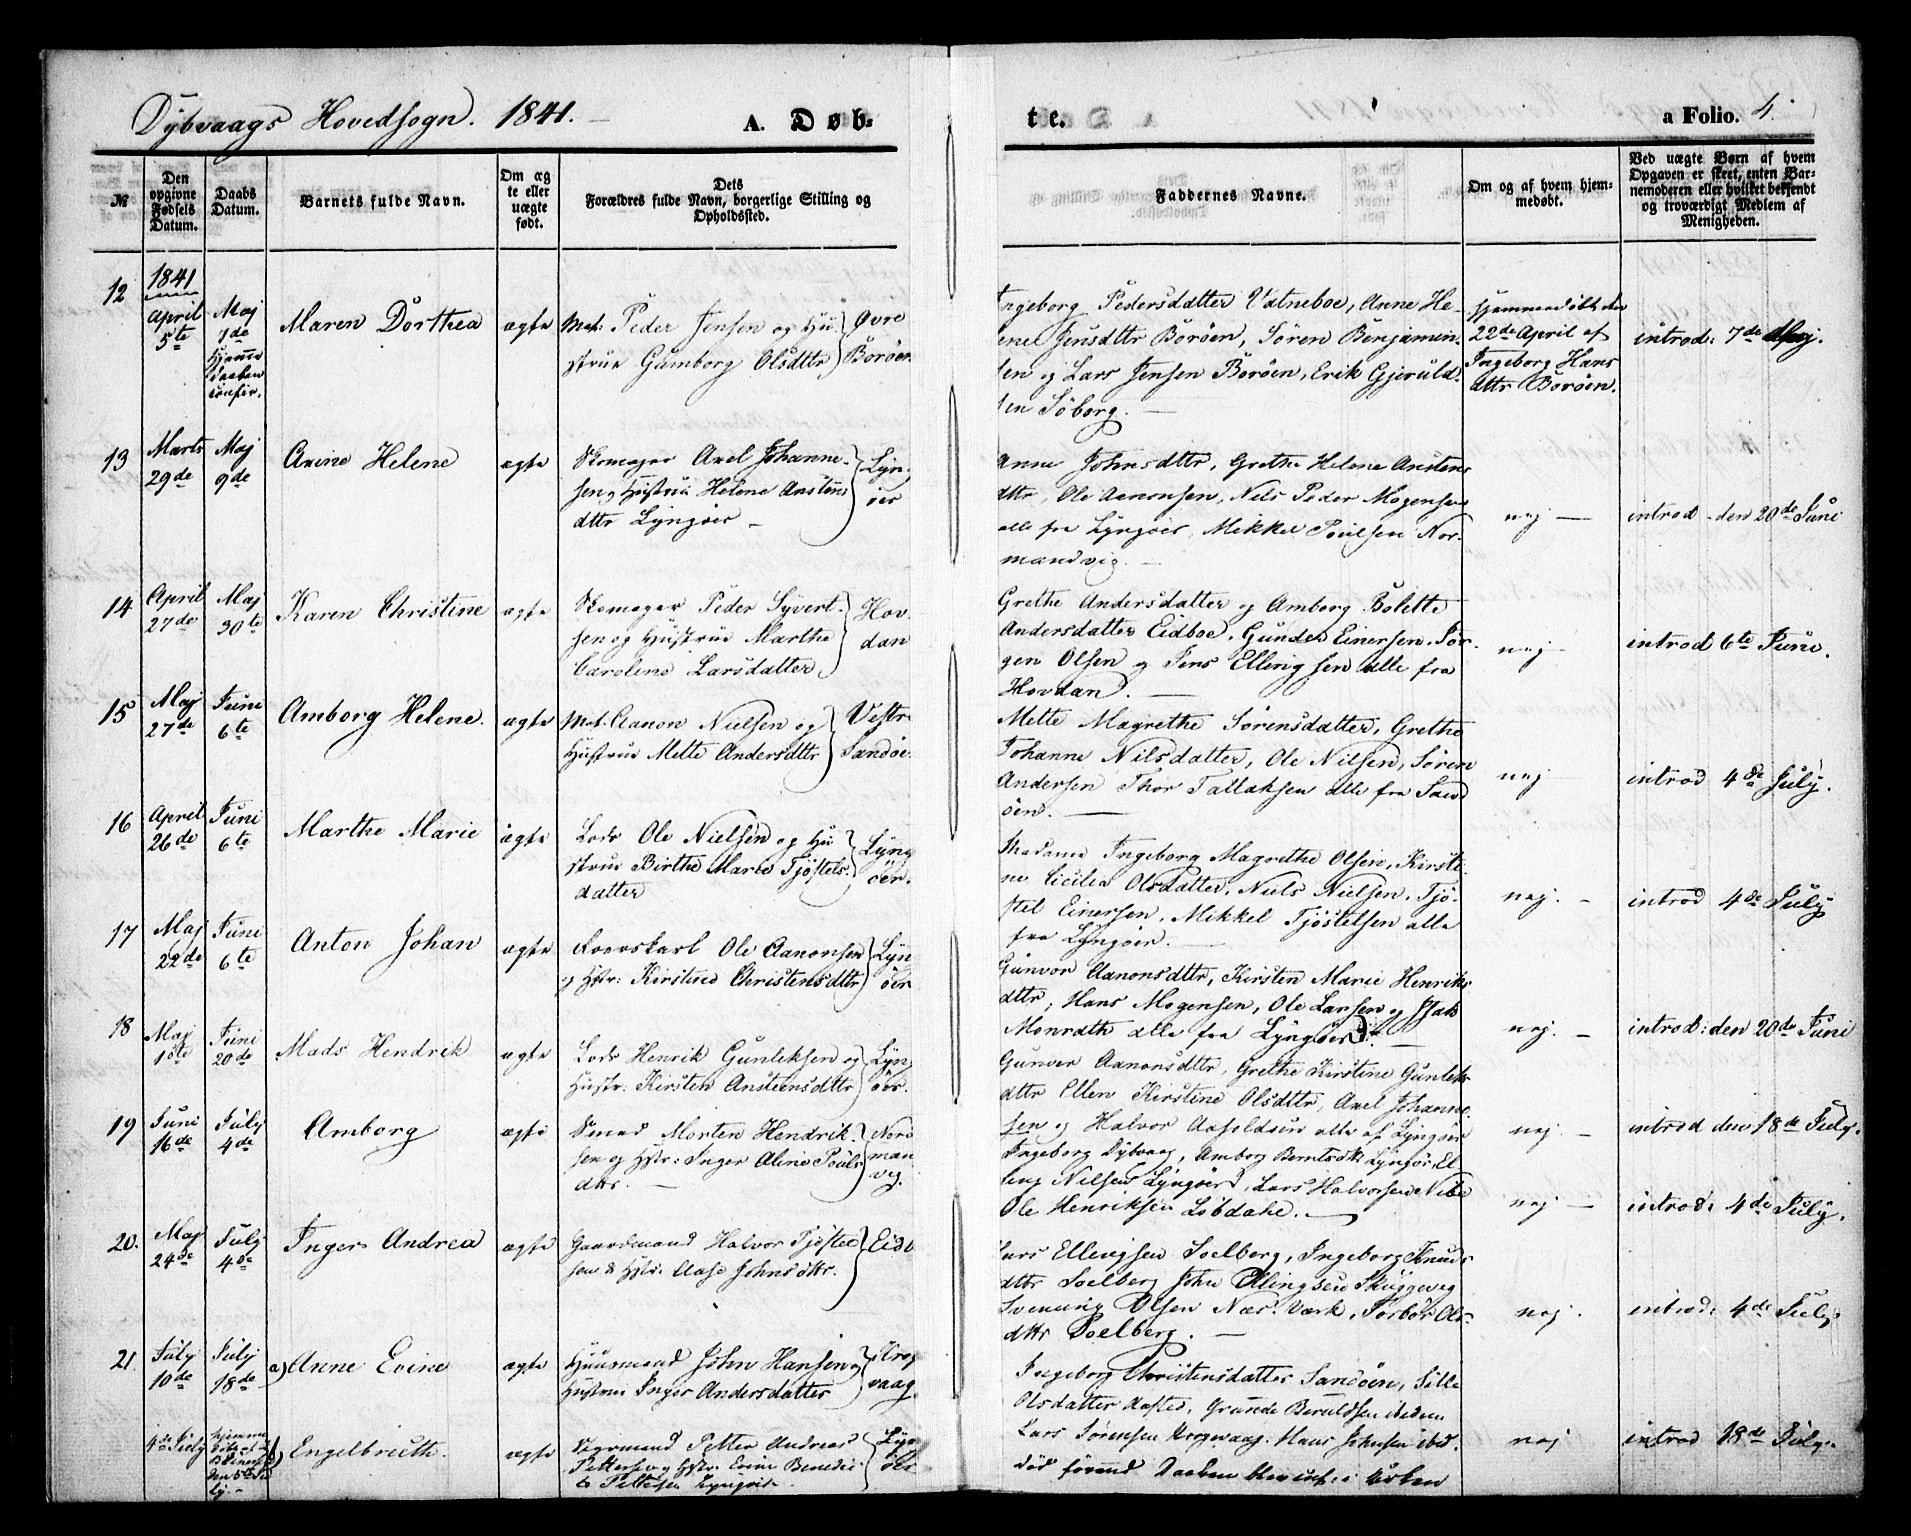 Dybvaags Hovedsogn. 1841. —
A. Døb-
te.
a Folio. 4.
№
Den opgivne Fødsels Datum.
Daabs Datum.
Barnets fulde Navn.
Om æg te eller uægte født.
Dets
Forældres fulde Navn, borgerlige Stilling og
Opholdssted.
Faddernes Navne.
Om og af hvem hjem-
medøbt.
Ved uægte Børn af hvem
Opgaven er skeet, enten Bar-
nemoderen eller hvilket bekjendt
og troværdigt Medlem af
Menigheden.
12
1841
April 5te
Maj 7de
Maren Dorthea
ægte
Mat: Peder Jensen og Hu
strue Gumborg Olsdttr
Øvre
Borøen
Ingeborg Pedersdatter Vatneboe, Anne He-
lene Jensdttr Borøen, Søren Benjamin
sen og Lars Jensen Borøen, Erik Gjeruld-
sen Søborg. —
Hjemmedøbt den
22de April af
Ingeborg Hans
dttr Borøen.
introd: 7de Maj.
13
Marts 29de
Maj 9de
Axine Helene
ægte
Skomager Axel Johanne-
sen og Hustrue Helene Anstens
dttr Lyngøer —
Lyn-
øer
Anne Johnsdttr, Grethe Helene Anstens
dttr, Ole Aanonsen, Nels Peder Mogensen
alle fra Lyngøer, Mikkel Poulsen Nor-
mandvig. —
nej —
introd - den 20de Juni
14
April 27de
Maj 30te
Karen Christine
ægte
Skomager Peder Syvert-
sen og Hustrue Marthe
Caroline Larsdatter
Hov-
dan
Grethe Andersdatter og Amborg Bolette
Andersdatter Eidboe, Gunder Einersen, Jør-
gen Olsen og Jens Ellingsen alle fra
Hovdan. —
nej
introd 6te Juni.
15
Maj 27de
Juni 6te
Amborg Helene.
ægte
Mat. Aanon Nielsen og
Hustrue Mette Andersdttr
Vestre
Sandøe
Mette Magrethe Sørensdatter, Grethe
Johanne Nilsdatter, Ole Nilsen, Søren
Andersen Thor Tallaksen alle fra Sand
øen. —
nej
introd 4de July.
16
April 26de
Juni 6te
Marthe Marie
ægte
Lods Ole Nielsen og Hu
strue Birthe Marie Tjøstels-
datter
Lyng
øer.
Madame Ingeborg Magrethe Olsen, Kirsti-
ne Cicilia Olsdatter, Niels Nielsen, Tjø-
stel Einersen, Mikkel Tjøstelsen alle
fra Lyngøer. —
nej. —
introd 4de July
17
Maj 22de
Juni 6te
Anton Johan
ægte
Roerskarl Ole Aanonsen
og Hstr: Kirstine Christensdttr
Lyn
øer
Gunvor Aanonsdttr, Kirsten Marie Henriks
dttr, Hans Mogensen, Ole Larsen og Isak
Monrath alle fra Lyngøer. —
nej. —
introd: den 20de Juni
18
Maj 1ste
Juni 20de
Mads Hendrik
ægte
Lods Henrik Gunleksen og
Hustr: Kirsten Ansteensdttr
Lyn
øer.
Gunver Aanonsdttr, Grethe Kirstine Gunleks
dttr Ellen Kirstine Olsdttr, Axel Johanne
sen og Halvor Aasoldsen alle af Lyngøer
nej. —
introd den 18de July.
19
Juni 16de
July 4de
Amborg
ægte
Smed Morten Hendrik-
sen og Hstr: Inger Aline Pouls
dttr. —
Nor
man
vig.
Ingeborg Dybvaag, Amborg Berntsdttr Lyngør, El
ling Nilsen Lyngøer, Lars Halvorsen Nibe
Ole Henriksen Løbdahe. —
nej —
introd: 4de July.
20.
Maj 24de
July 4de
Inger Andrea
ægte
Gaardmand Halvor Tjøstel
sen & Hstr. Aase Johnsdttr.
Eidb
Lars Ellingsen Soelberg, Ingeborg Knuds
dttr Soelberg John Ellingsen Skuggevig
Svenning Olsen Næs Værk, Torbor Ols-
dttr Soelberg. —
nej.
introd: 4de July.
21.
July 10de
July 18de
a) Anne Evine
ægte
Huusmand John Hansen og
Hustrue Inger Andersdatter
Krog
vaag.
Ingeborg Christensdatter Sandøen, Sille
Olsdatter Aasted, Grunde Beruldsen ibidem
Lars Sørensen Krogevaag. Hans Johnsen ibid.
nej
introd 18de July.
4de July
Engelbreth.
ægte
Petter Andreas
Pettersen og Hstr. Evine Benedic
te Pettersen Lyngøer.
Lyn
øer
død førend Daaben blev conf: i Kirken